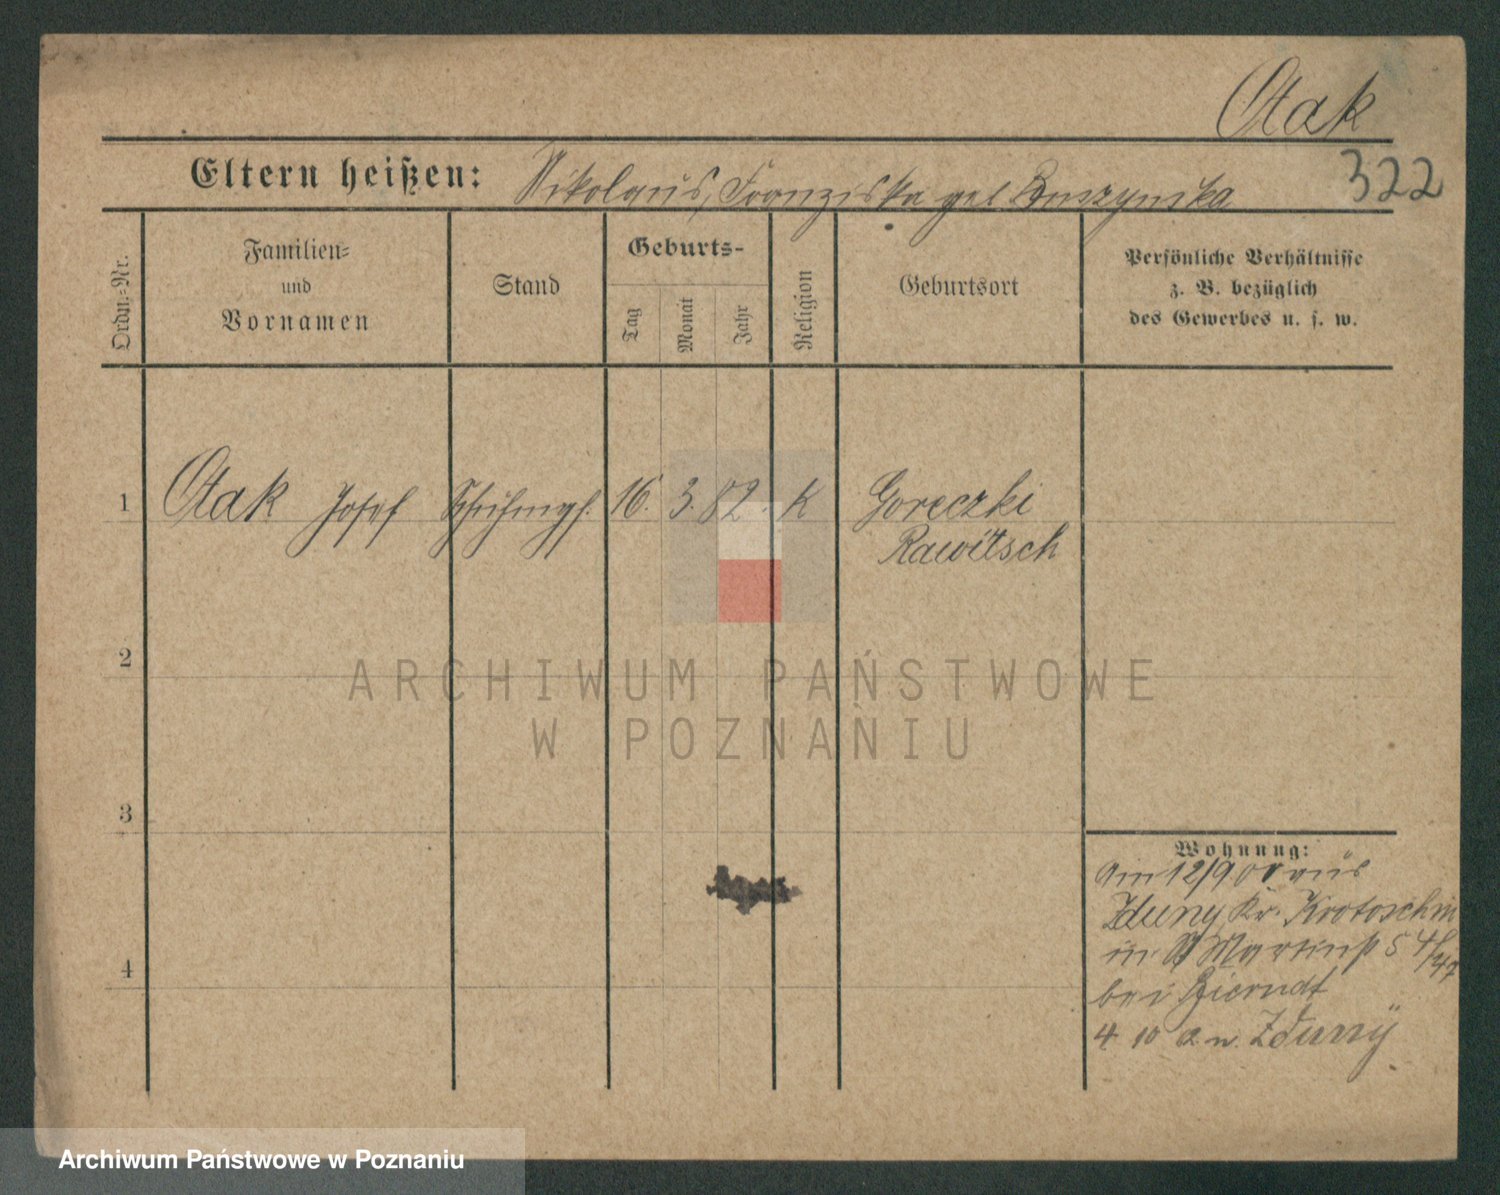 Otak
322
Eltern heißen: Nikolaus, Franziska geb
Ordn.=Nr.
Familien= und Vornamen
Stand
Geburts-
Tag
Monat
Jahr
Religion
Geburtsort
Persönliche Verhältnisse
z. B. bezüglich
des Gewerbes u. s. w.
1 Otak Josef Schuhmgs. 16. 3. 82. K Goreczki
Rawitsch
2
3
4
Wohnung:
Am 12/9 00 aus
Zduny Kr. Krotoschin
in St Martinst 54
bei
4 10 a. n. Zduny
ARCHIWUM PAŃSTWOWE
W POZNANIU
Archiwum Państwowe w Poznaniu